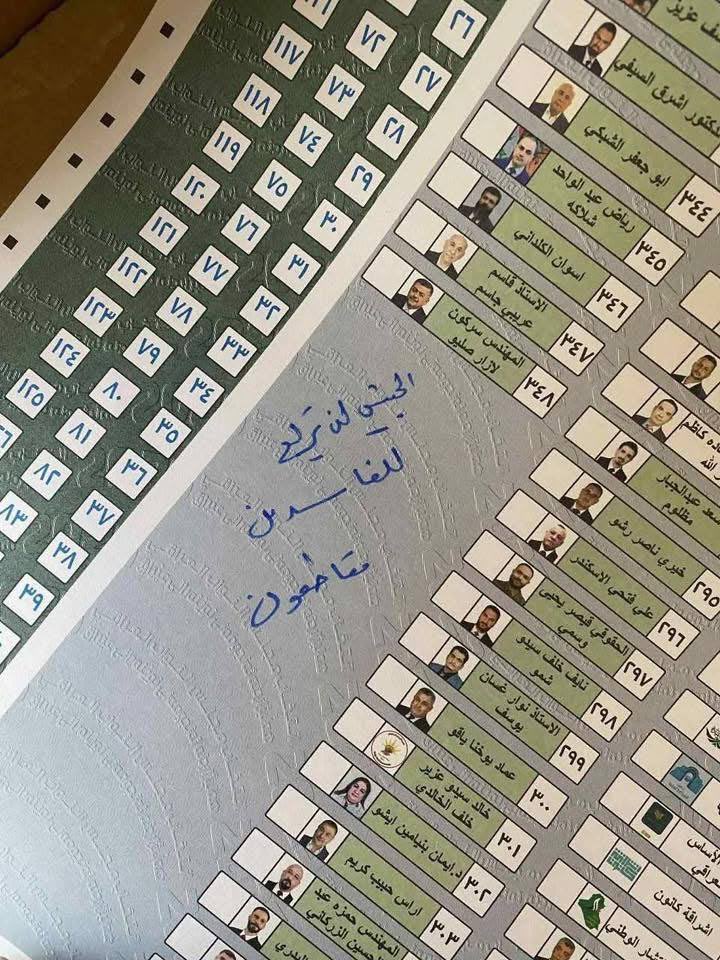 ٢٦
٧٢
١١٧
٢٧
٧٣
١١٨
٢٨
٧٤
١١٩
٢٩
٧٥
١٢٠
٣٠
٧٦
١٢١
٣١
٧٧
١٢٢
٣٢
٧٨
١٢٣
٣٣
٧٩
١٢٤
٣٤
٨٠
١٢٥
٣٥
٨١
٣٦
٨٢
٣٧
٨٣
٣٨
٣٩
عزيز
اشرق الصيفي
ابو جعفر الشبكي
٣٤٤
رياض عبد الواحد
شلاكه
٣٤٥
اسوان الكلداني
٣٤٦
الاستاذ قاسم
عريبي جاسم
٣٤٧
المهندس سركون
لازار صليو
٣٤٨
الجيش لن يركع
للفاسدين
مقاطعون
كاظم
الله
عبدالجبار
مظلوم
خيري ناصر رشو
٢٩٥
علي فتحي الاسكندر
٢٩٦
الحقوقي قيصر يحيى
وسمي
٢٩٧
نايف خلف سيدو
شمو
٢٩٨
الاستاذ نوار غسان
يوسف
٢٩٩
عماد يوخنا ياقو
٣٠٠
خالد سيدو عزيز
خلف الخالدي
٣٠١
د.ايمان بنيامين ايشو
٣٠٢
اراس حبيب كريم
٣٠٣
المهندس حمزه عبد
الحسين الزركاني
الأساس
اشراقة كانون
الوطني